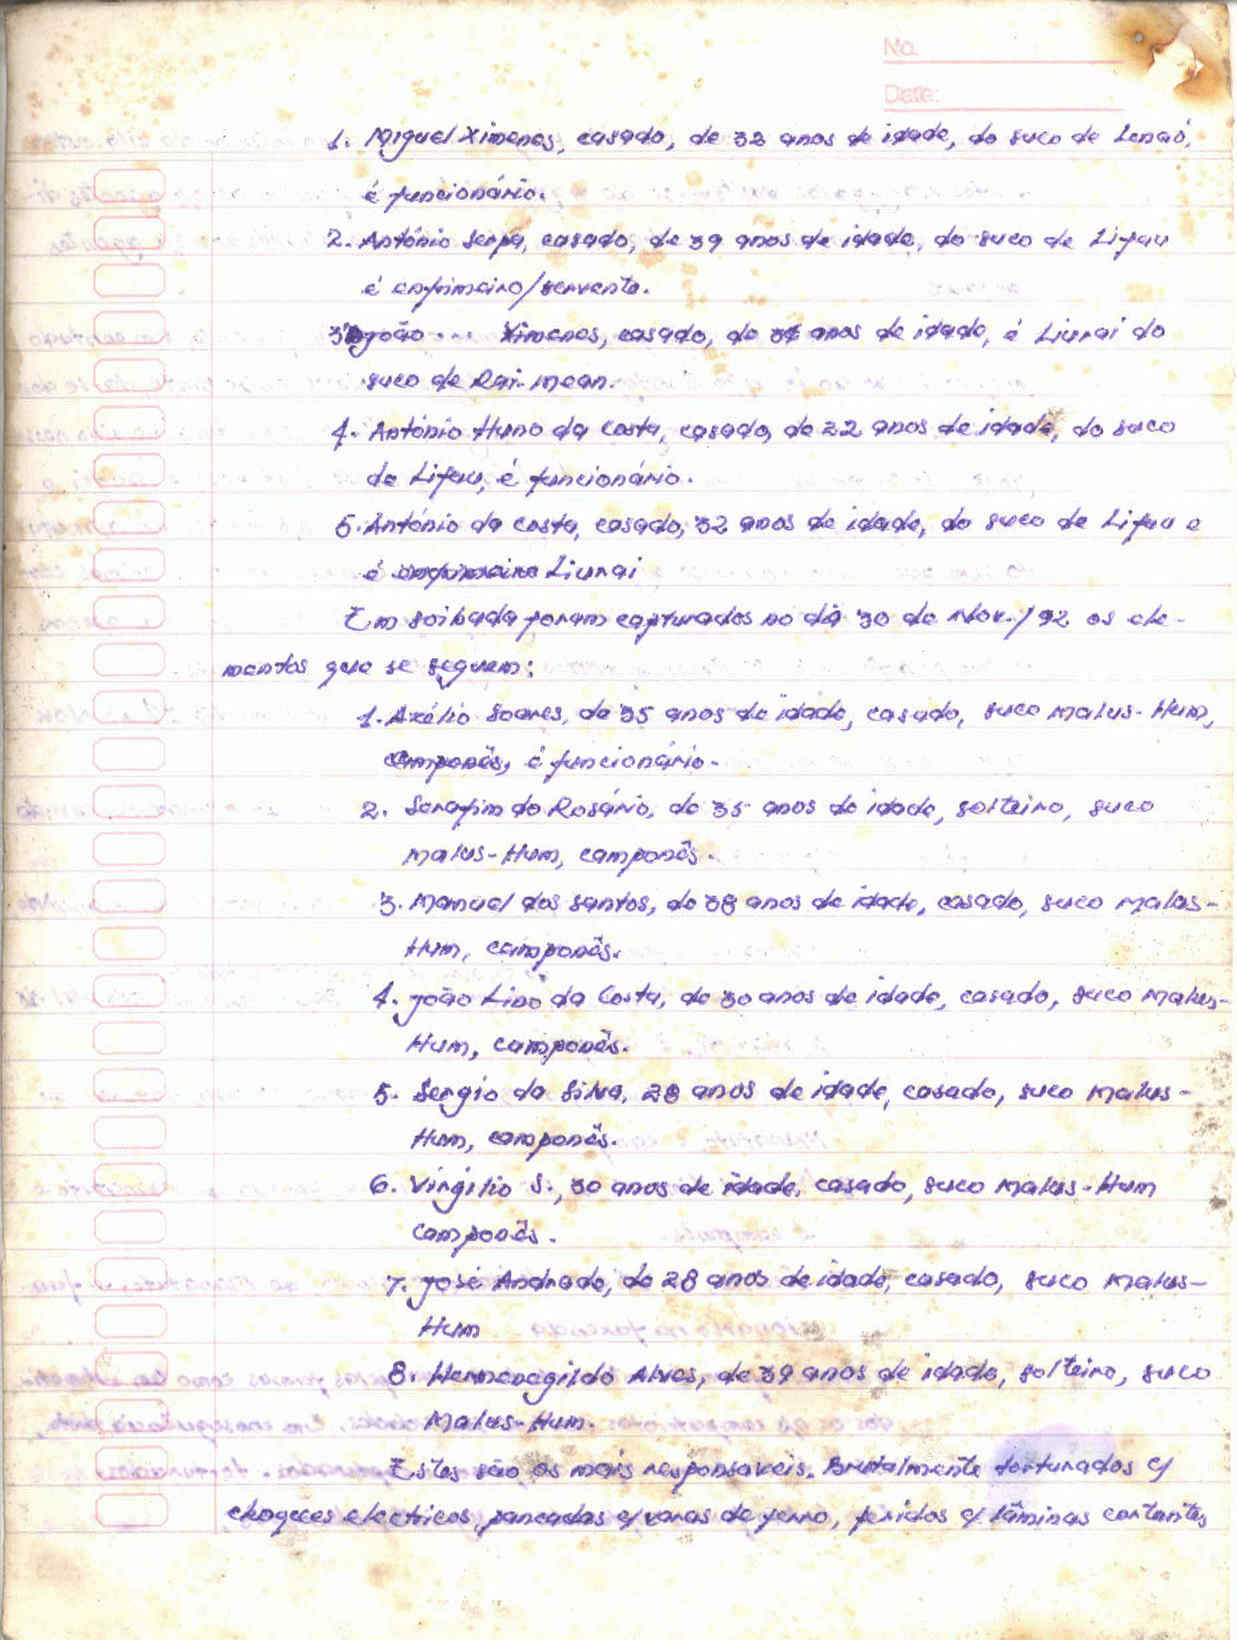 No.
Date:
1. Miguel Ximenes, casado, de 32 anos de idade, do suco de
é funcionário.
2. António Serpa, casado, de 39 anos de idade, do suco de Lifau
é enfrmeiro/servente.
3. João ... Ximenes, casado, de anos de idade, é Liurai do
suco de Rai-mean.
4. António Huno da Costa, casado, de 22 anos de idade, do suco
de Lifau, é funcionário.
5. António da Costa, casado, 32 anos de idade, do suco de Lifau e
é Liurai
Em Soibada foram capturados no dia 30 de Nov./92 os ele-
mentos que se seguem:
1. Axélio Soares, de 35 anos de idade, casado, suco Malus-Hum,
é funcionário.
2. Serafim do Rosário, de 35 anos de idade, solteiro, suco
Malus-Hum, camponês.
3. Manuel dos Santos, de 38 anos de idade, casado, suco Malus-
Hum, camponês.
4. João Lino da Costa, de 30 anos de idade, casado, suco Malus-
Hum, camponês.
5. Sergio da Silva, 28 anos de idade, casado, suco Malus-
Hum, camponês.
6. Virgilio S., 30 anos de idade, casado, suco Malus-Hum
camponês.
7. José Andrade, de 28 anos de idade, casado, suco Malus-
Hum
8. Hermenegildo Alves, de 39 anos de idade, solteiro, suco
Malus-Hum.
Estes são os mais responsaveis. Brutalmente torturados c/
choques electricos, pancadas c/varas de ferro, feridos c/ lâminas cortantes